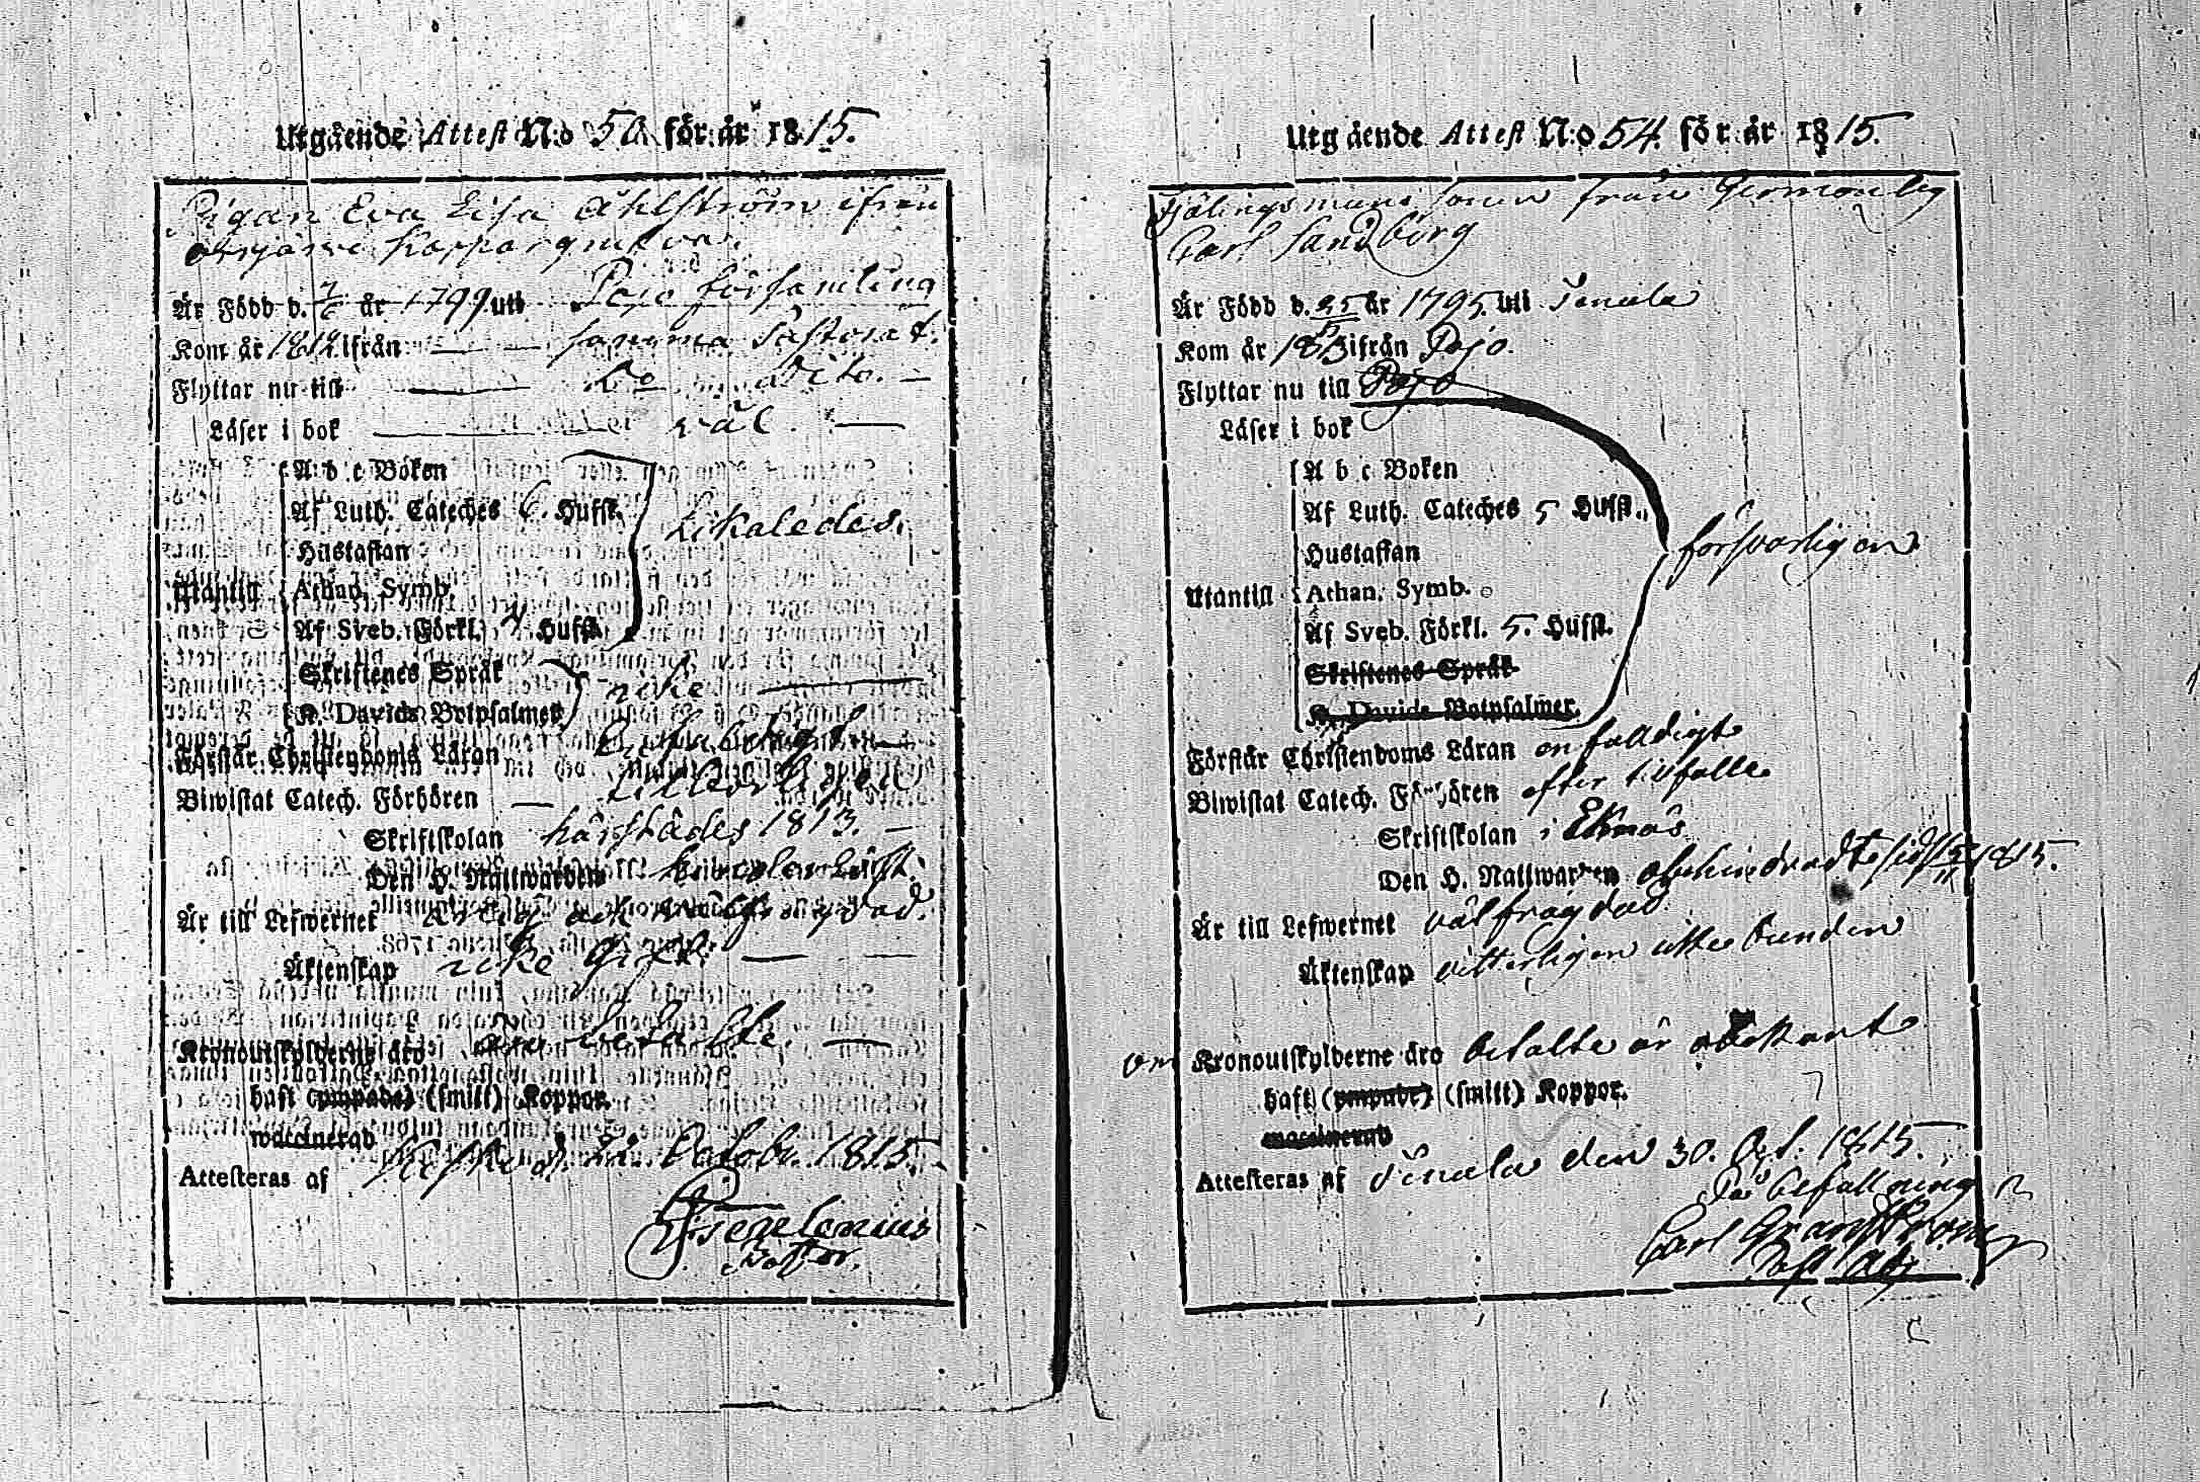 Utgående Attest N:o 50 för år 1815.
Pigan Eva Lisa Åhlström ifrån
Koppargrufva.
Är Född d. 7/6 år 1799. uti Pojo församling
Kom år 1812 ifrån — — samma Pastorat.
Flyttar nu till — Do dito. —
Läser i bok — väl. —
A b c Boken
Af Luth. Cateches 6. Hufst.
Likaledes.
Hustaflan
Utantill
Athan. Symb.
Af Sveb. Förkl. 4 Hufst.
Skriftenes Språk
icke —
K. Davids Botpsalmer
Förstår Christendoms Läran enfaldigt —
Biwistat Catech. Förhören —
Skriftskolan härstädes 1813. —
Den H. Nattwarden
Är till Lefwernet ärlig och välfrägdad.
Äktenskap icke gift. — —
Kronoutskylderne äro betalte. —
haft (ympade) (smitt) Koppor.
vaccinerad
Attesteras af Kisko d. 22. Octobr. 1815.
Pastor.
Utgående Attest N:o 54. för år 1815.
sonen från
Carl Sandberg
Är Född d. 25/5 år 1795. uti Tenala
Kom år 1813 ifrån Pojo.
Flyttar nu till Pojo
Läser i bok
A b c Boken
Af Luth. Cateches 5 Hufst.
Hustaflan
försvarligen
Utantill
Athan. Symb.
Af Sveb. Förkl. 5. Hufst.
Skriftenes Språk
K. Davids Botpsalmer.
Förstår Christendoms Läran enfaldigt
Biwistat Catech. Förhören efter tilfälle
Skriftskolan i Eknäs
Den H. Nattwarden obehindradt sidst 1815.
Är till Lefwernet välfrägdad
Äktenskap vitterligen icke bunden
om Kronoutskylderne äro betalte är obekant
haft (ympade) (smitt) Koppor.
vaccinerad
Attesteras af Tenala den 30. Oct. 1815.
På befallning
Carl Granström